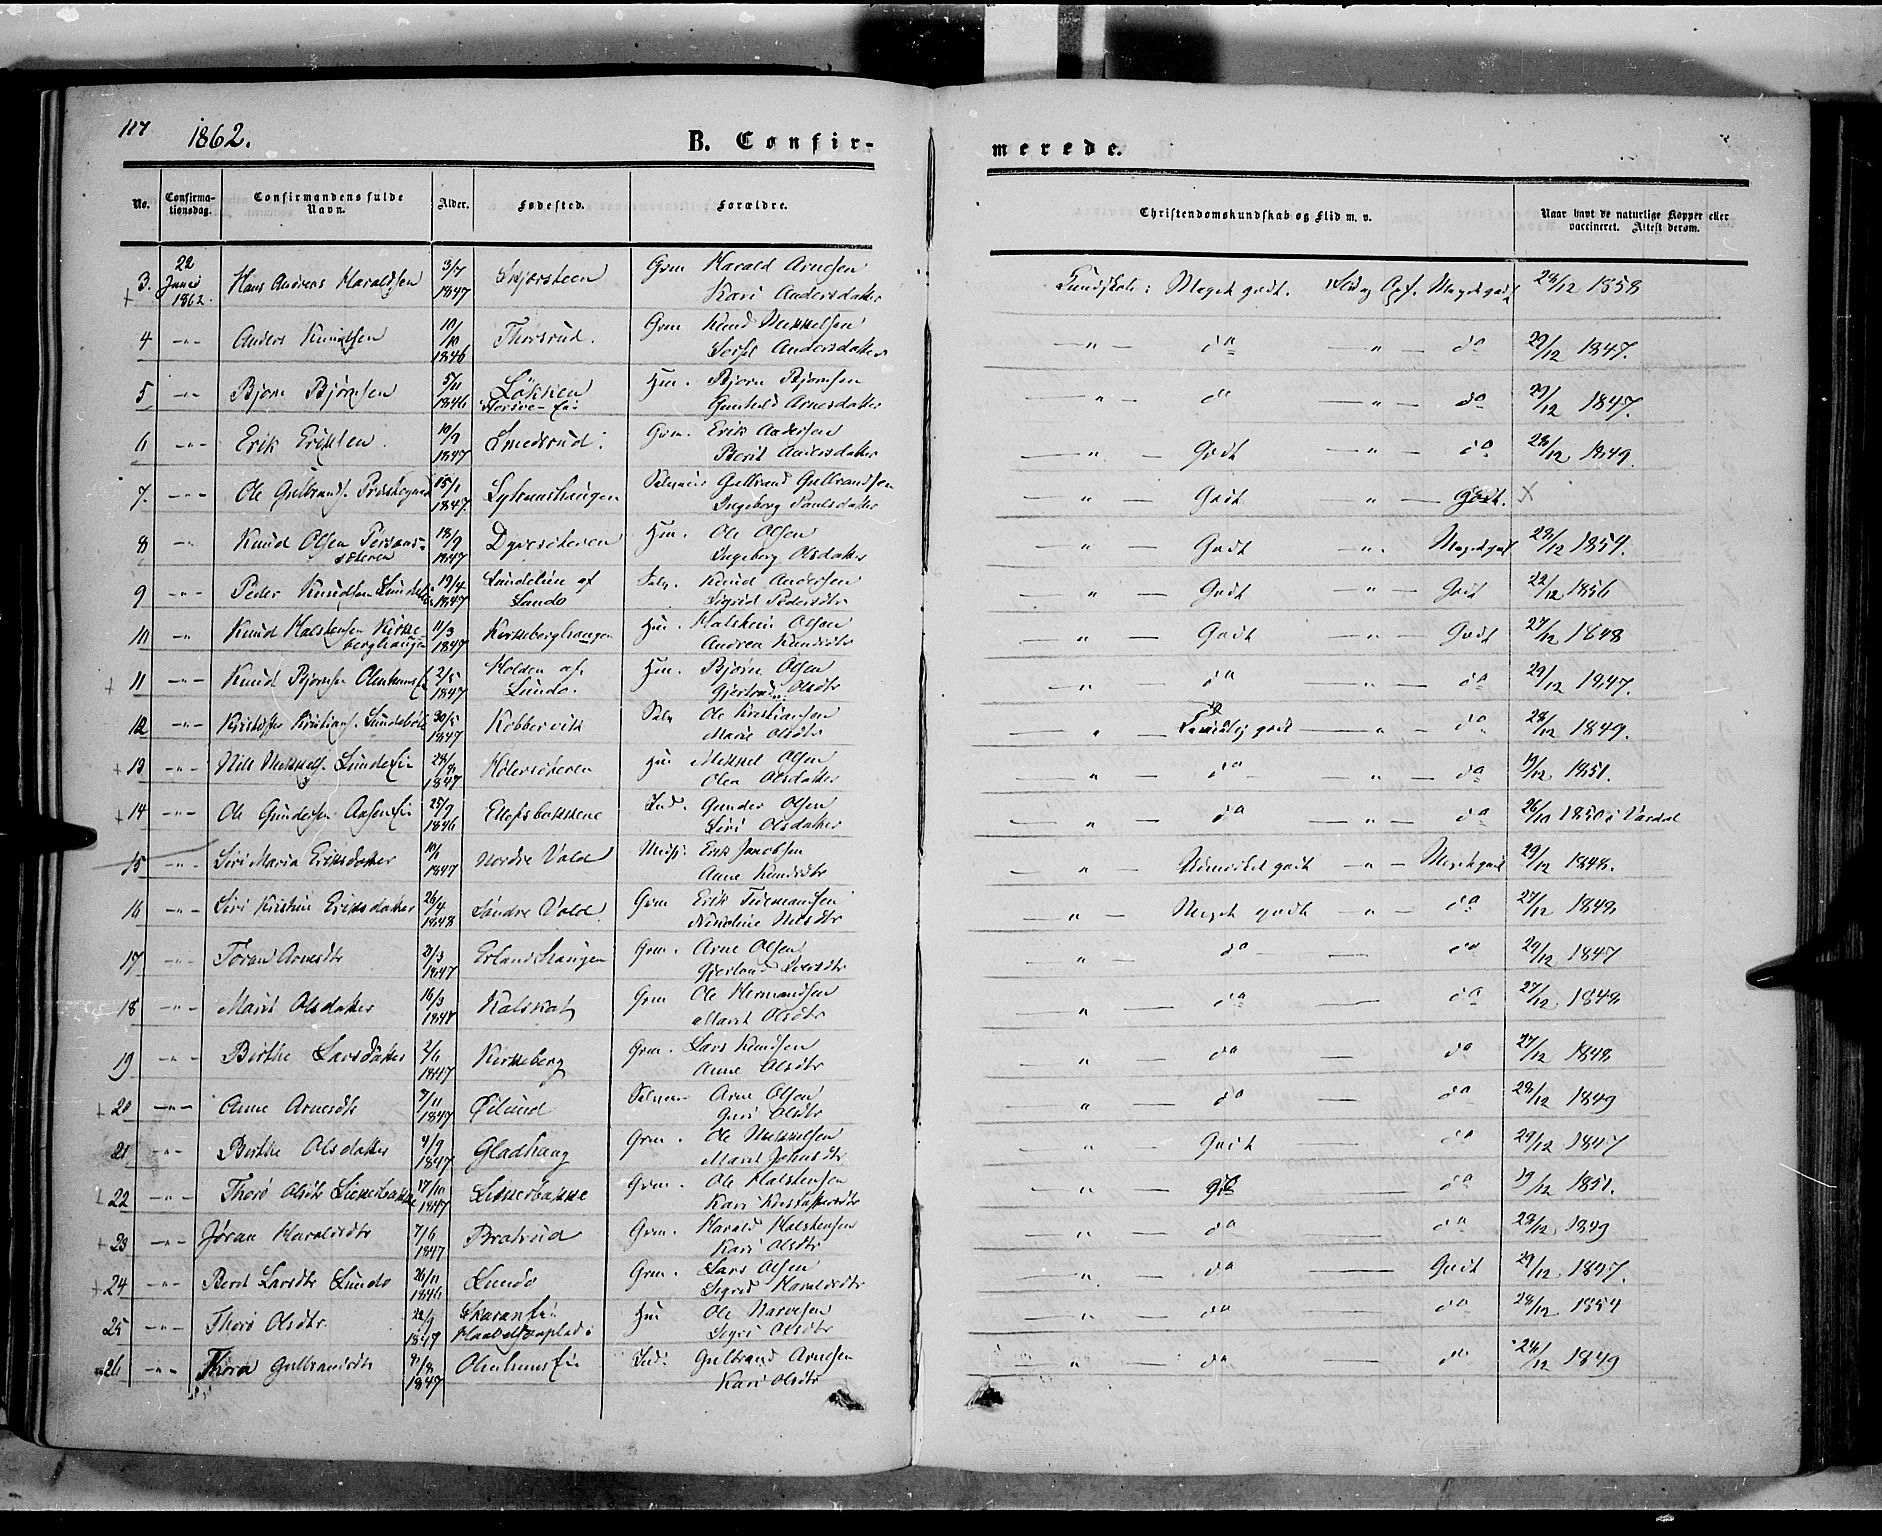 117 1862. B. Confir- merede.
No. Confirma-tionsdag. Confirmandens fulde Navn. Alder. Fødested. Forældre. Christendomskundskab og Flid m. v. Naar havt de naturlige Kopper eller vaccineret. Attest derom.
3. 22 Juni 1862. Hans Andreas Haraldsen 3/7 1847 Skjørsteen Grm Harald Arnesen Kari Andersdatter Kundskab: Meget godt. Flid og Opf. Meget godt 28/12 1858
4 -"- Anders Knudsen 10/10 1846 Thorsrud. Grm Knud Mikkelsen Andersdatter " do " do 29/12 1847.
5 -"- Bjørn Bjørnsen 5/11 1846 Løkken Hm. Bjørn Bjørnsen Gunhild Arnesdatter " do " do 29/12 1847.
6 -"- Erik Eriksen 10/9 1847 Smedsrud. Grm. Erik Andersen Berit Andersdatter " Godt " do 28/12 1849.
7. -"- Ole Gulbrands. 15/1 1847. Gulbrand Gulbrandsen Ingeborg Paulsdatter " Godt " Godt. X
8 -"- Knud Olsen 18/9 1847 Hm. Ole Olsen Ingeborg Olsdatter " Godt " Meget godt 29/12
9 -"- Peder Knudsen 19/4 1847 Lundelien af Lundo Knud Andersen Sigrid Pedersdtr " Godt " Godt 22/12 1856
10 -"- Knud Halstensen Kirkeberghaugen 11/3 1847 Kirkeberghaugen Hm. Halstein Olsen Andrea Knudsdtr " Godt " Godt 27/12 1848
11 -"- Knud Bjørnsen 2/5 1847 Holden af Lundo. Hm. Bjørn Olsen Gjertrud Olsdtr " do do 29/12 1847.
12 -"- Kristians. 30/5 1847 Kobbervik Ole Kristiansen Marie Olsdtr " Temmelig godt " do 28/12 1849.
13 -"- Nils Mikkels. 1847 Mikkel Olsen Olea Olsdatter " do " do 19/12 1851.
14 -"- Ole Gundersen 25/9 1846 Ellefsbakkene Ind. Gunder Olsen Siri Olsdatter " do do 26/10 1850 i Vardal
15 -"- Siri Maria Eriksdatter 1847 Nordre Vold Erik Jacobsen Anne Knudsdtr " Udmerket godt -"- Meget godt 29/12 1848.
16 -"- Siri Kristine Eriksdatter 26/4 1848 Søndre Vold Grm Erik Nilsdtr " Meget godt " do 27/12 1848
17 -"- Jøran Arnesdtr 1847 Erlandshaugen Grm. Arne Olsen " do do 29/12 1847
18 -"- Marit Olsdatter 16/3 Kalskat Grm Ole Hermandsen Marit Olsdtr " do do 27/12 1848
19 -"- Birthe Larsdatter 2/6 1847 Kirkeberg Grm. Lars Knudsen Anne Olsdtr " do do 27/12 1848
20 -"- Anne Arnesdtr 7/11 1847 Øilund Arne Olsen Guri Olsdtr " do do 28/12 1849
21 -"- Birthe Olsdatter 4/9 1847 Gladhaug Grm. Ole Mikkelsen Marit Johnsdtr " Godt do 29/12 1847
22 -"- Thorø Olsdtr 17/10 1847 Grm. Ole Halstensen Kari Kristoffersdtr " do do 19/12 1851.
23 -"- Jøran Haraldsdtr 7/6 1847 Bratrud Grm. Harald Halstensen Kari Olsdtr " do do 28/12 1849
24 -"- Berit Larsdtr Lundo 26/11 1846 Lundo Grm. Lars Olsen Sigrid Haraldsdtr " do Godt 29/12 1847.
25 -"- Thorø Olsdtr 22/9 1847 Hm Ole Sigri Olsdtr " do do 28/12 1854
26 -"- Thora Gulbrandsdtr 1847 Ind. Gulbrand Arnesen Kari Olsdtr " do do 24/12 1849